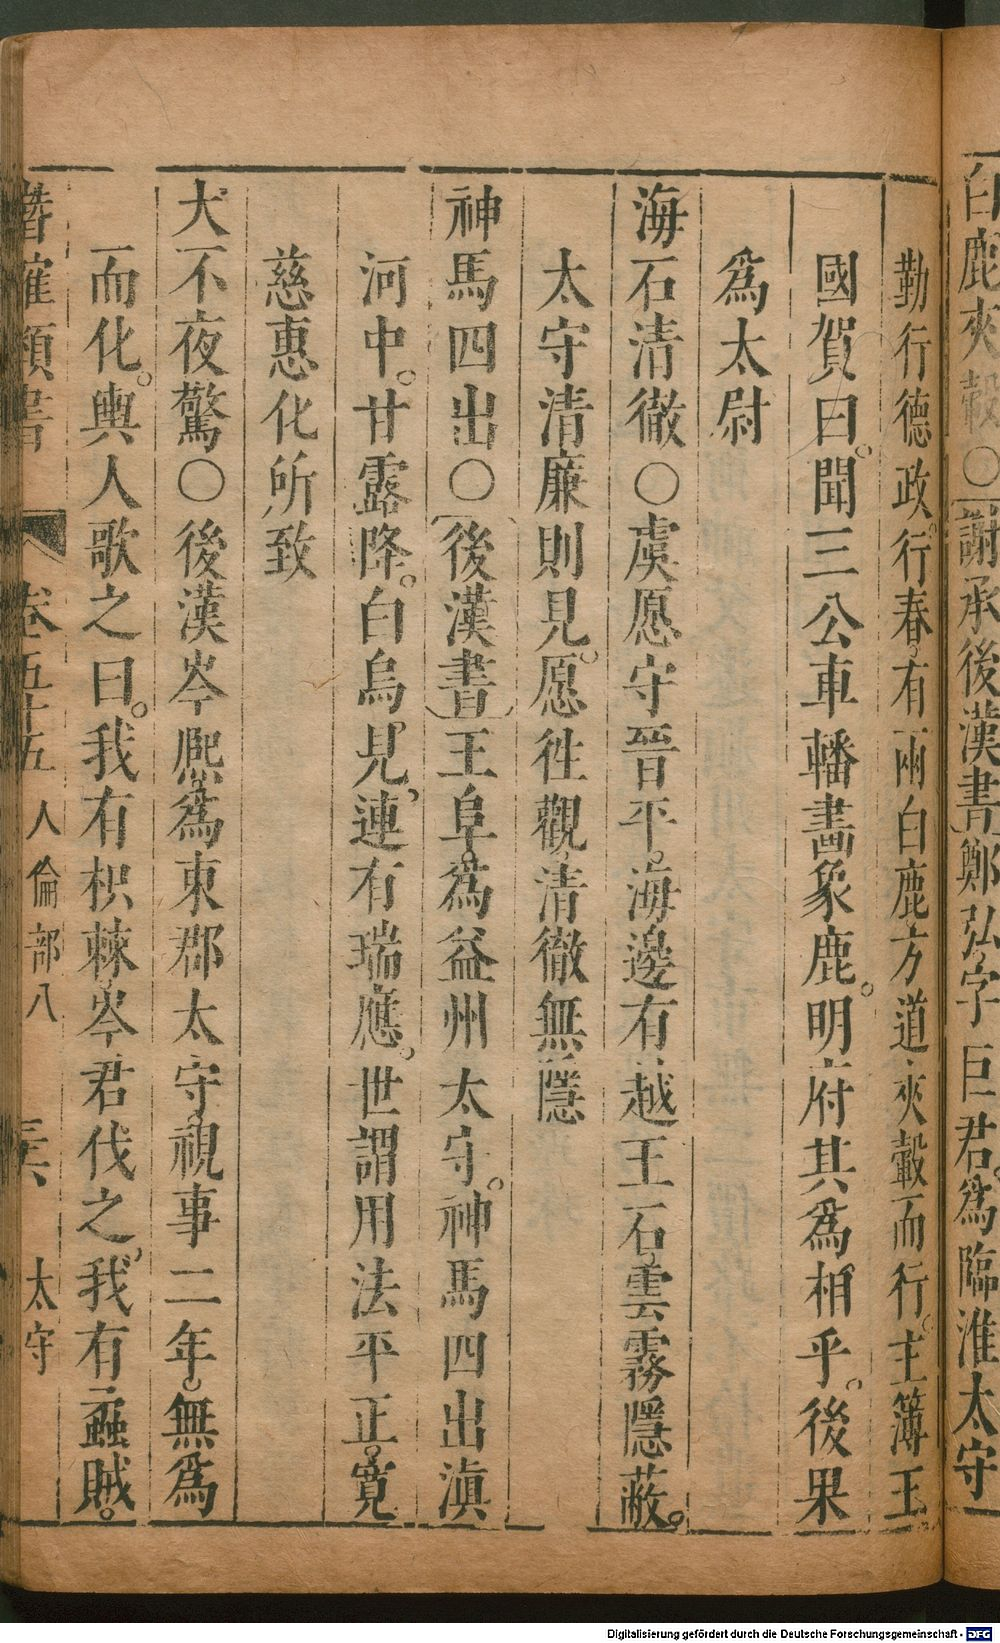 白鹿夾轂○謝承後漢書鄭弘字巨君爲臨淮太守
勤行德政行春有兩白鹿方道夾轂而行主簿王
國賀曰聞三公車轓畫象鹿明府其爲相乎後果
爲太尉
海石清徹○虞愿守晉平海邊有越王石雲霧隱蔽
太守清廉則見愿徃觀清徹無隱
神馬四出○後漢書王阜爲益州太守神馬四出滇
河中甘露降白烏見連有瑞應世謂用法平正寛
慈惠化所致
犬不夜驚○後漢岑熈爲東郡太守視事二年無爲
而化輿人歌之曰我有枳棘岑君伐之我有蝨賊
潛確類書 卷五十五 人倫部八 太守
Digitalisierung gefördert durch die Deutsche Forschungsgemeinschaft - DFG